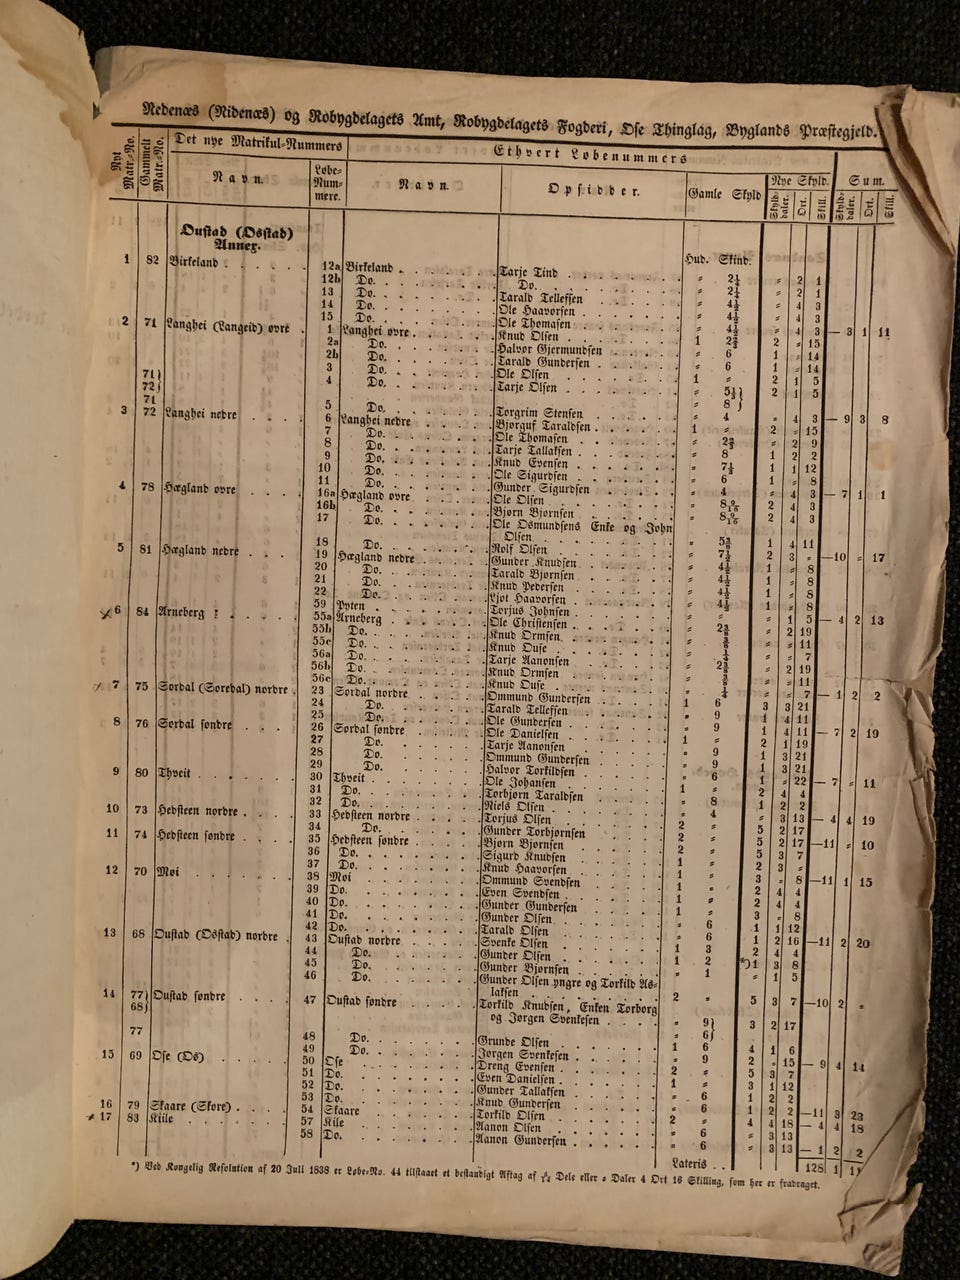 Nedenæs (Nidenæs) og Robygdelagets Amt, Robygdelagets Fogderi, Ose Thinglag, Byglands Præstegjeld.
Nyt Matr.-No. Gammelt Matr.-No. Det nye Matrikul-Nummers Ethvert Løbenummers
Navn. Løbe-Nummere. Navn. Opsidder. Gamle Skyld Nye Skyld. Sum.
Skylddaler. Ort. Skill. Skylddaler. Ort. Skill.
Oustad (Osstad)
Annex.
Hud. Skind.
1 82 Birkeland 12a Birkeland Tarje Tind " 2¼ " 2 1
12b Do. Do. " 2¼ " 2 1
13 Do. Tarald Tellefsen " 4½ " 4 3
14 Do. Ole Haavorsen " 4½ " 4 3
15 Do. Ole Thomasen " 4½ " 4 3 — 3 1 11
2 71 Langhei (Langeid) øvre 1 Langhei øvre Knud Olsen 1 2 " 15
2a Do. Halvor Gjermundsen " 6 1 " 14
2b Do. Tarald Gundersen " 6 1 " 14
3 Do. Ole Olsen 1 " 2 1 5
71) 72) 4 Do. Tarje Olsen " 5⅓) 2 1 5
71 " 8 )
5 Do. Torgrim Stensen " 4 " 4 3 — 9 3 8
3 72 Langhei nedre 6 Langhei nedre Bjorguf Taraldsen 1 " 2 " 15
7 Do. Ole Thomasen " 2⅔ " 2 9
8 Do. Tarje Tallaksen " 8 1 2 2
9 Do. Knud Evensen " 7⅓ 1 1 12
10 Do. Ole Sigurdsen " 6 1 " 8
11 Do. Gunder Sigurdsen " 4 " 4 3 — 7 1 1
4 78 Hægland øvre 16a Hægland øvre Ole Olsen " 8 9/16 2 4 3
16b Do. Bjørn Bjørnsen " 8 9/16 2 4 3
17 Do. Ole Osmundsens Enke og John
Olsen " 1 4 11
18 Do. Rolf Olsen " 7½ 2 3 " —10 " 17
5 81 Hægland nedre 19 Hægland nedre Gunder Knudsen " 4½ 1 " 8
20 Do. Tarald Bjørnsen " 4½ 1 " 8
21 Do. Knud Pedersen " 4½ 1 " 8
22 Do. Ljot Haavorsen " 4½ 1 " 8
59 Pyten Torjus Johnsen " " " 1 5 — 4 2 13
6 84 Arneberg 55a Arneberg Ole Christensen " " 2 19
55b Do. Knud Ormsen " " " 11
55c Do. Knud Ouse " ¼ " " 7
56a Do. Tarje Aanonsen " " 2 19
56b Do. Knud Ormsen " " " 11
56c Do. Knud Ouse " ¼ " " 7 — 1 2 2
7 75 Sordal (Sorebal) nordre 23 Sordal nordre Ommund Gundersen 1 6 3 3 21
24 Do. Tarald Tellefsen " 9 1 4 11
25 Do. Ole Gundersen " 9 1 4 11 — 7 2 19
8 76 Sordal søndre 26 Sordal søndre Ole Danielsen 1 " 2 1 19
27 Do. Tarje Aanonsen " 9 1 3 21
28 Do. Ommund Gundersen " 9 1 3 21
29 Do. Halvor Torkildsen " 6 1 " 22 — 7 " 11
9 80 Thveit 30 Thveit Ole Johansen 1 " 2 4 4
31 Do. Torbjørn Taraldsen " 8 1 2 2
32 Do. Niels Olsen " 4 " 3 13 — 4 4 19
10 73 Hedsteen nordre 33 Hedsteen nordre Torjus Olsen 2 " 5 2 17
34 Do. Gunder Torbjørnsen 2 " 5 2 17 —11 " 10
11 74 Hedsteen søndre 35 Hedsteen søndre Bjørn Bjørnsen 2 " 5 3 7
36 Do. Sigurd Knudsen 1 " 2 3 "
37 Do. Knud Haavorsen 1 " 3 " 8 —11 1 15
12 70 Moi 38 Moi Ommund Svendsen 1 " 2 4 4
39 Do. Even Svendsen 1 " 2 4 4
40 Do. Gunder Gundersen 1 " 3 " 8
41 Do. Gunder Olsen " 6 1 1 12
42 Do. Tarald Olsen " 6 1 2 16 —11 2 20
13 68 Oustad (Osstad) nordre 43 Oustad nordre Svenke Olsen 1 3 2 4 4
44 Do. Gunder Olsen 1 2 *)1 3 8
45 Do. Gunder Bjørnsen " 1 " 1 5
46 Do. Gunder Olsen yngre og Torkild As-
laksen 2 " 5 3 7 —10 2 "
14 77) 68) Oustad søndre 47 Oustad søndre Torkild Knudsen, Enken Torborg
og Jørgen Svenkesen " 9) 3 2 17
77 " 6)
48 Do. Grunde Olsen 1 6 4 1 6
49 Do. Jørgen Svenkesen " 9 2 " 15 — 9 4 14
15 69 Ose (Os) 50 Ose Dreng Evensen 2 " 5 3 7
51 Do. Even Danielsen 1 " 3 1 12
52 Do. Gunder Tallaksen " 6 1 2 2
53 Do. Knud Gundersen " 6 1 2 2 —11 3 23
16 79 Skaare (Skore) 54 Skaare Torkild Olsen 2 " 4 4 18 — 4 4 18
17 83 Kiile 57 Kiile Aanon Olsen " 6 " 3 13
58 Do. Aanon Gundersen " 6 " 3 13 — 1 2 2
Lateris 128 1 11
*) Ved Kongelig Resolution af 20 Juli 1838 er Løbe-No. 44 tilstaaet et bestandigt Aftag af Dele eller " Daler 4 Ort 16 Skilling, som her er fradraget.